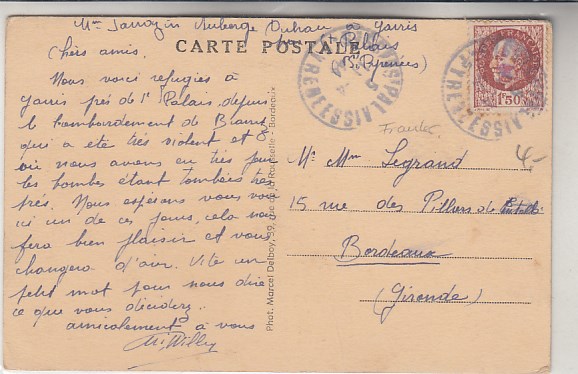 Mme Sarrazin Auberge Duhau à Garris
par St Palais
(Bses Pyrénées)
CARTE POSTALE
Chers amis.
Nous voici réfugiés à
Garris près de St Palais depuis
le bombardement de Biarritz
qui a été très violent et
où nous avons eu très peur
les bombes étant tombées très
près. Nous espérons vous voir
ici un de ces jours, cela nous
fera bien plaisir et vous
changera d'air. Vite un
petit mot pour nous dire
ce que vous décidez.
amicalement à vous
Willy
Phot. Marcel Delboy, 39, rue de la Rousselle - Bordeaux
ST PALAIS
BSSES PYRENEES
1F50
Mr Mme Legrand
15 rue des Piliers de Tutelle
Bordeaux
(Gironde)
4-